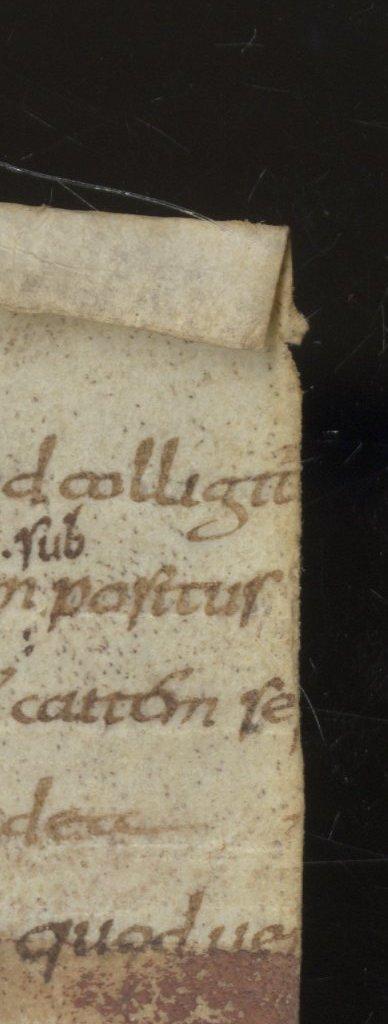 d colligit
.sub
m positus
cattem se
dea
quod ue